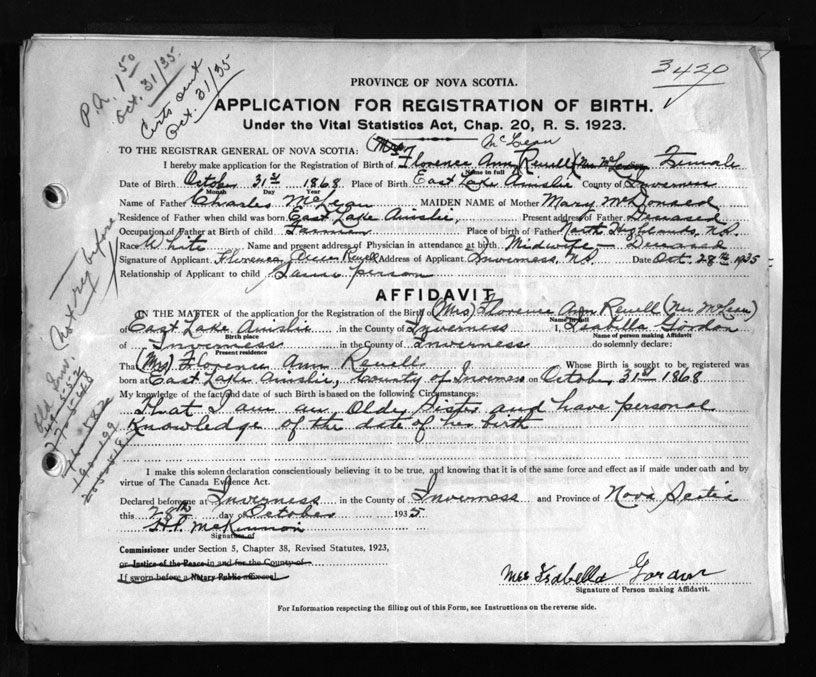 3420
P.A. 1.50
Oct. 31/35
Certs out
Oct. 31/35
PROVINCE OF NOVA SCOTIA.
APPLICATION FOR REGISTRATION OF BIRTH.
Under the Vital Statistics Act, Chap. 20, R. S. 1923.
McLean
TO THE REGISTRAR GENERAL OF NOVA SCOTIA: (Mrs)
I hereby make application for the Registration of Birth of Florence Ann Revell (Nee McLean) Female
Name in full
Date of Birth October 31st 1868 Place of Birth East Lake Ainslie County of Inverness
Month Day Year
Name of Father Charles McLean MAIDEN NAME of Mother Mary McDonald
Residence of Father when child was born East Lake Ainslie, Present address of Father Deceased
Occupation of Father at Birth of child Farmer Place of birth of Father North Highlands, N.S.
Race White Name and present address of Physician in attendance at birth Midwife — Deceased
Signature of Applicant Florence Ann Revell Address of Applicant Inverness, N.S. Date Oct. 28th 1935
Relationship of Applicant to child Same person
AFFIDAVIT
IN THE MATTER of the application for the Registration of the Birth of (Mrs) Florence Ann Revell (Nee McLean)
Name in full
of East Lake Ainslie in the County of Inverness I, Isabella Gordon
Birth place Name of person making Affidavit
of Inverness in the County of Inverness do solemnly declare:
Present residence
That (Mrs) Florence Ann Revell Whose Birth is sought to be registered was
born at East Lake Ainslie, County of Inverness on October 31st 1868
My knowledge of the fact and date of such Birth is based on the following Circumstances:
That I am an Older Sister and have personal
Knowledge of the date of her birth
I make this solemn declaration conscientiously believing it to be true, and knowing that it is of the same force and effect as if made under oath and by
virtue of The Canada Evidence Act.
Declared before me at Inverness in the County of Inverness and Province of Nova Scotia
this 28th day of October 1935
McKinnon
Signature of
Commissioner under Section 5, Chapter 38, Revised Statutes, 1923,
or Justice of the Peace in and for the County of
If sworn before a Notary Public affix seal
Mrs Isabella Gordon
Signature of Person making Affidavit.
For Information respecting the filling out of this Form, see Instructions on the reverse side.
Not reg before
Old Inv.